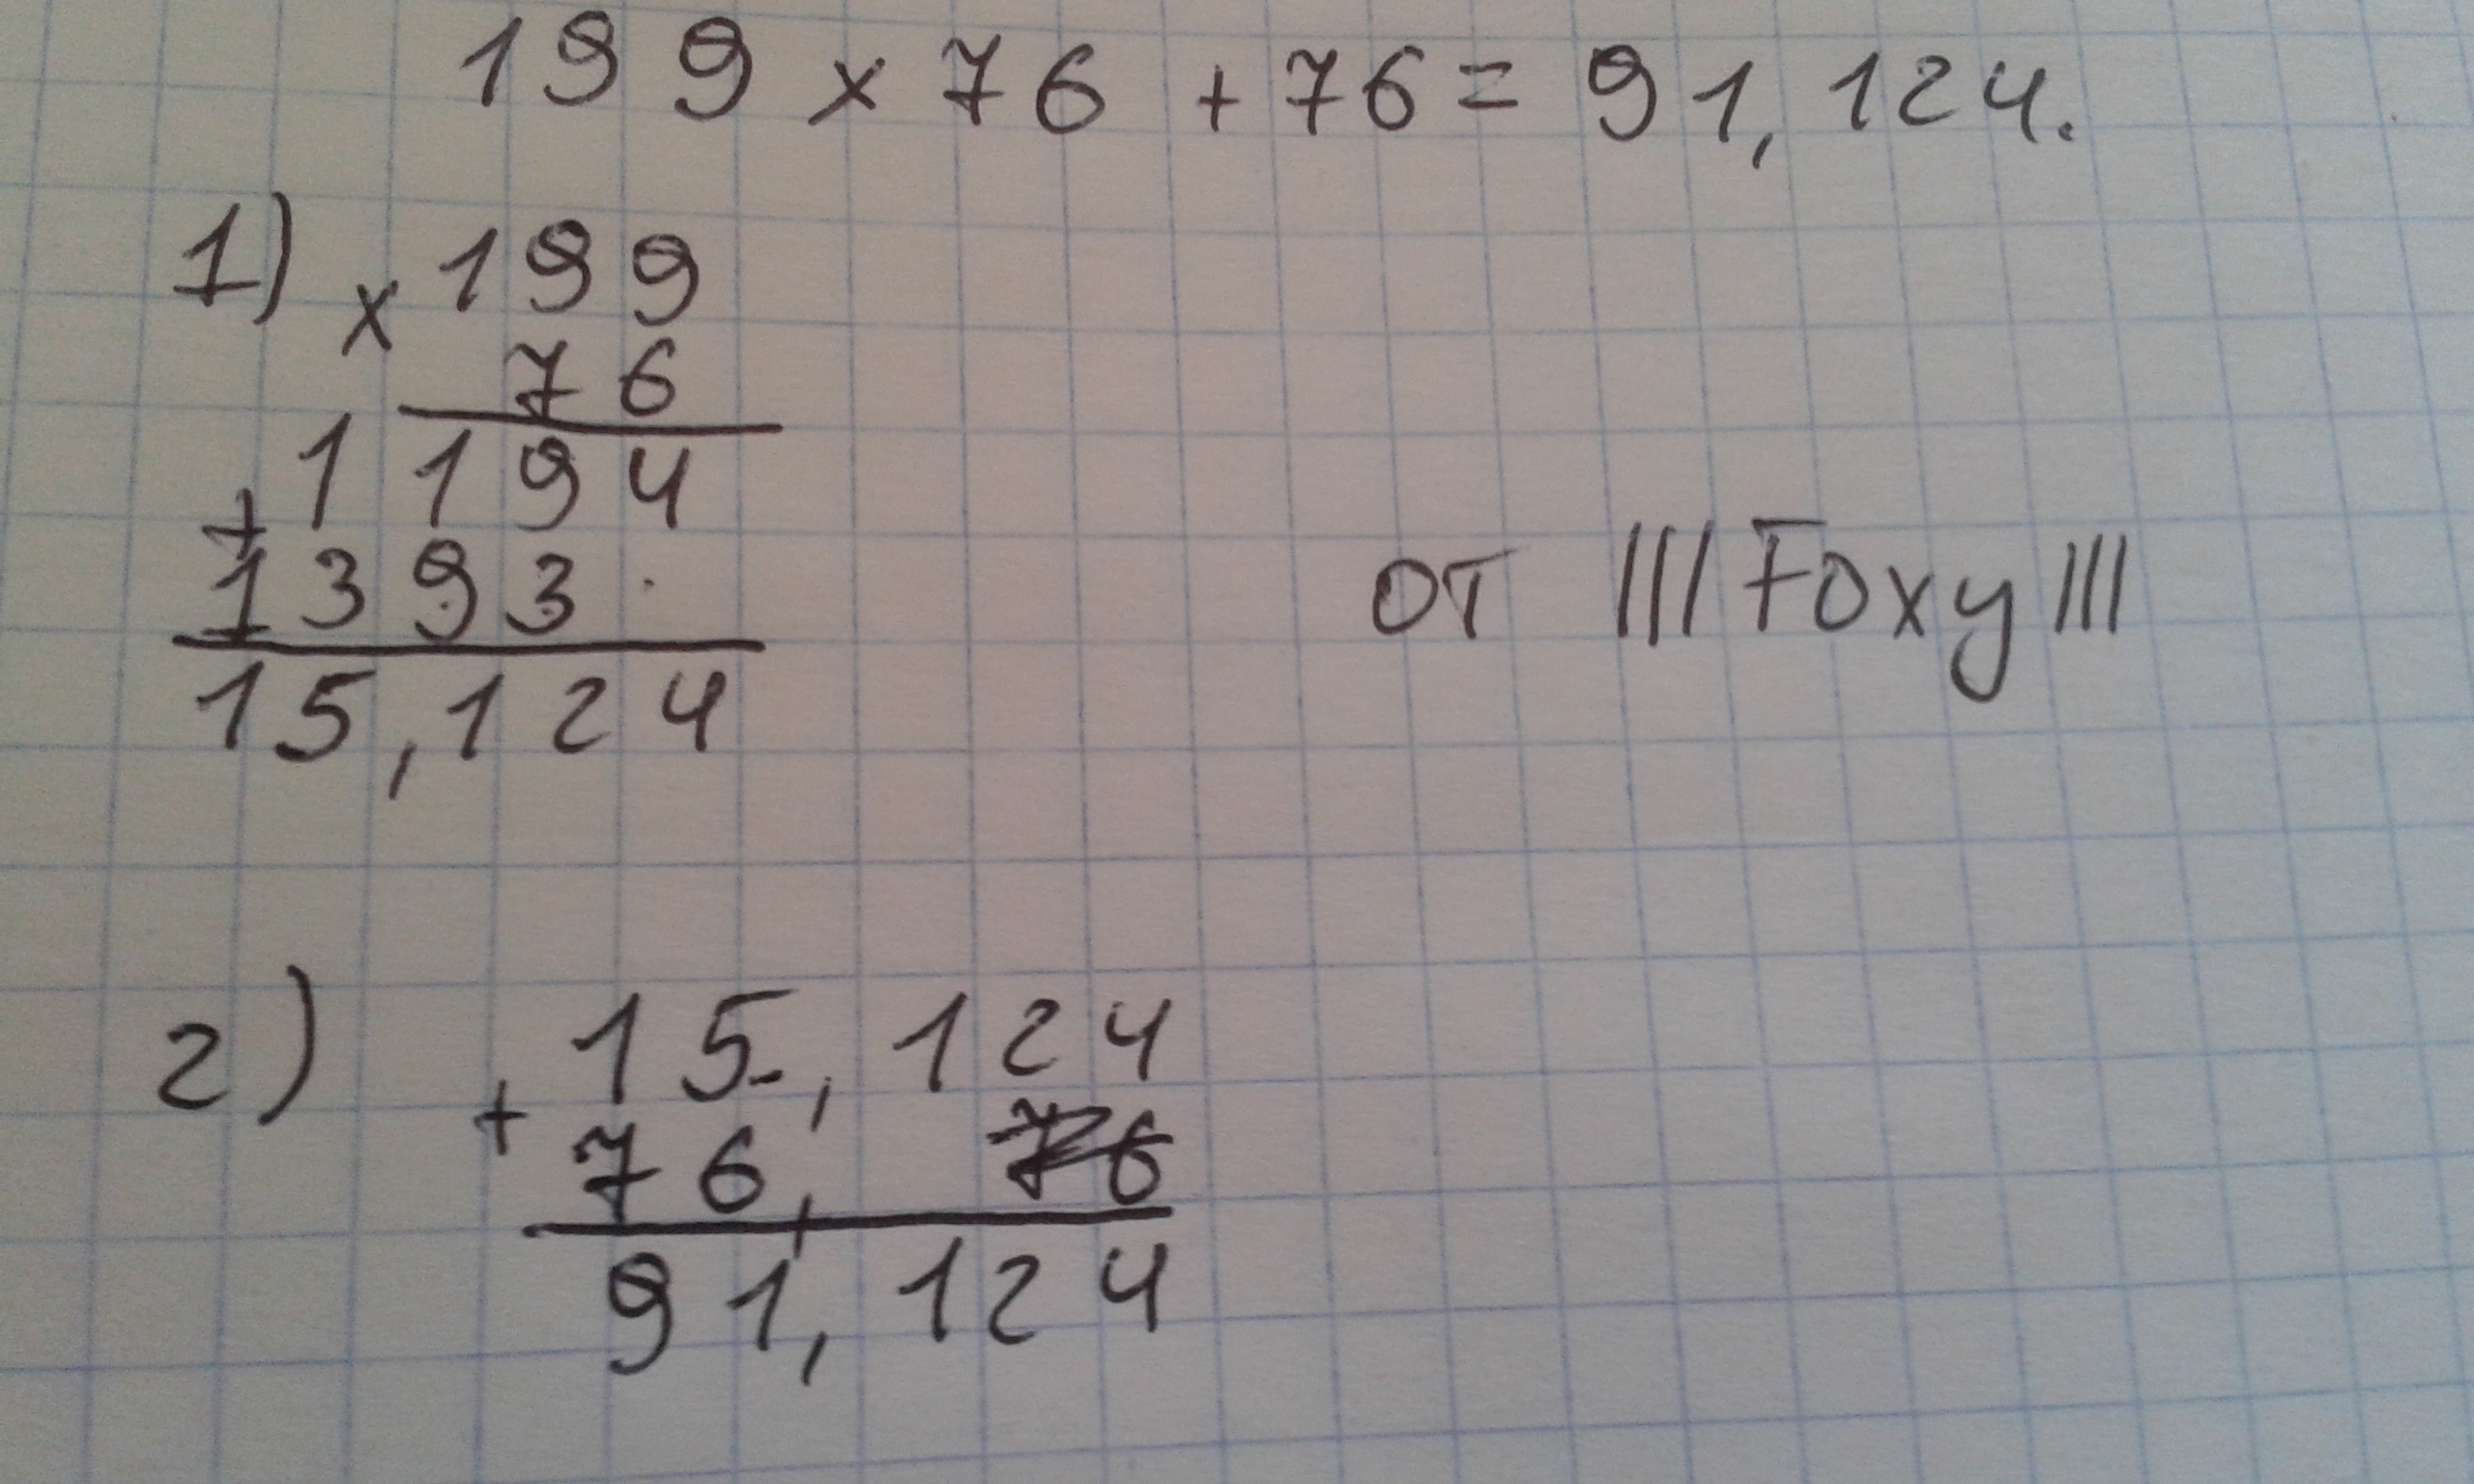 199 x 76 + 76 = 91,124.
1) x 199
76
+ 1194
1393
15,124
от |||Foxy|||
2) + 15,124
76,
91,124